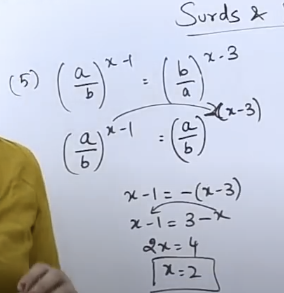 Surds &
(5) (a/b)^(x-1) = (b/a)^(x-3)
(a/b)^(x-1) = (a/b)^(-(x-3))
x-1 = -(x-3)
x-1 = 3-x
2x = 4
x = 2